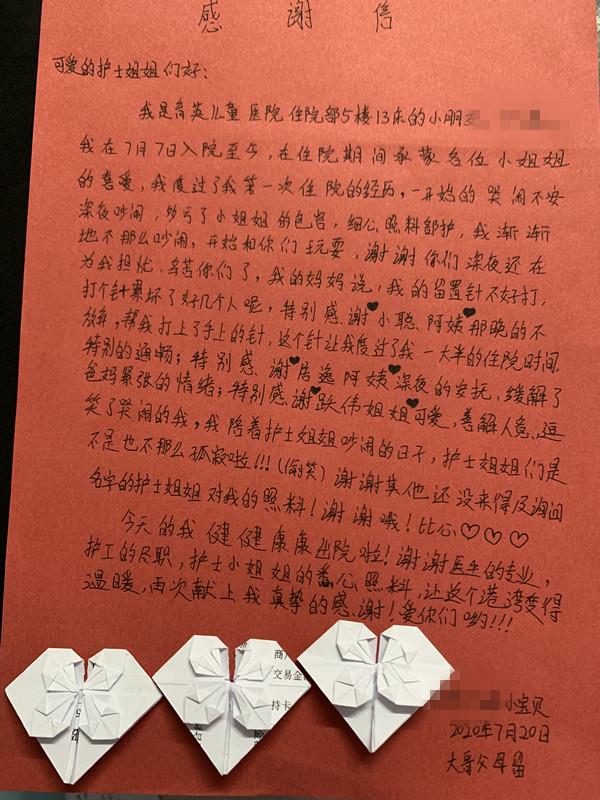 感谢信
可爱的护士姐姐们好：
我是育英儿童医院住院部5楼13床的小朋友
我在7月7日入院至今，在住院期间承蒙各位小姐姐
的喜爱，我度过了我第一次住院的经历，一开始的哭闹不安
深夜吵闹，多亏了小姐姐的包容，细心照料部护，我渐渐
地不那么吵闹，开始和你们玩耍，谢谢你们深夜还在
为我担忧、辛苦你们了，我的妈妈说，我的留置针不好打，
打个针累坏了好几个人呢，特别感谢♥小聪阿姨♥那晚的不
放弃，帮我打上了手上的针，这个针让我度过了我一大半的住院时间，
特别的通畅；特别感谢♥居逸阿姨♥深夜的安抚、缓解了
爸妈紧张的情绪；特别感谢♥跃伟姐姐♥可爱，善解人意，逗
笑了哭闹的我，我陪着护士姐姐吵闹的日子，护士姐姐们是
不是也不那么孤寂啦!!!（偷笑）谢谢其他还没来得及询问
名字的护士姐姐对我的照料！谢谢哦！比心♡♡♡
今天的我健健康康出院啦！谢谢医生的专业，
护工的尽职，护士小姐姐的悉心照料，让这个港湾变得
温暖，再次献上我真挚的感谢！爱你们哟!!!
小宝贝
2020年7月20日
大哥父母留
商户
交易金额
持卡